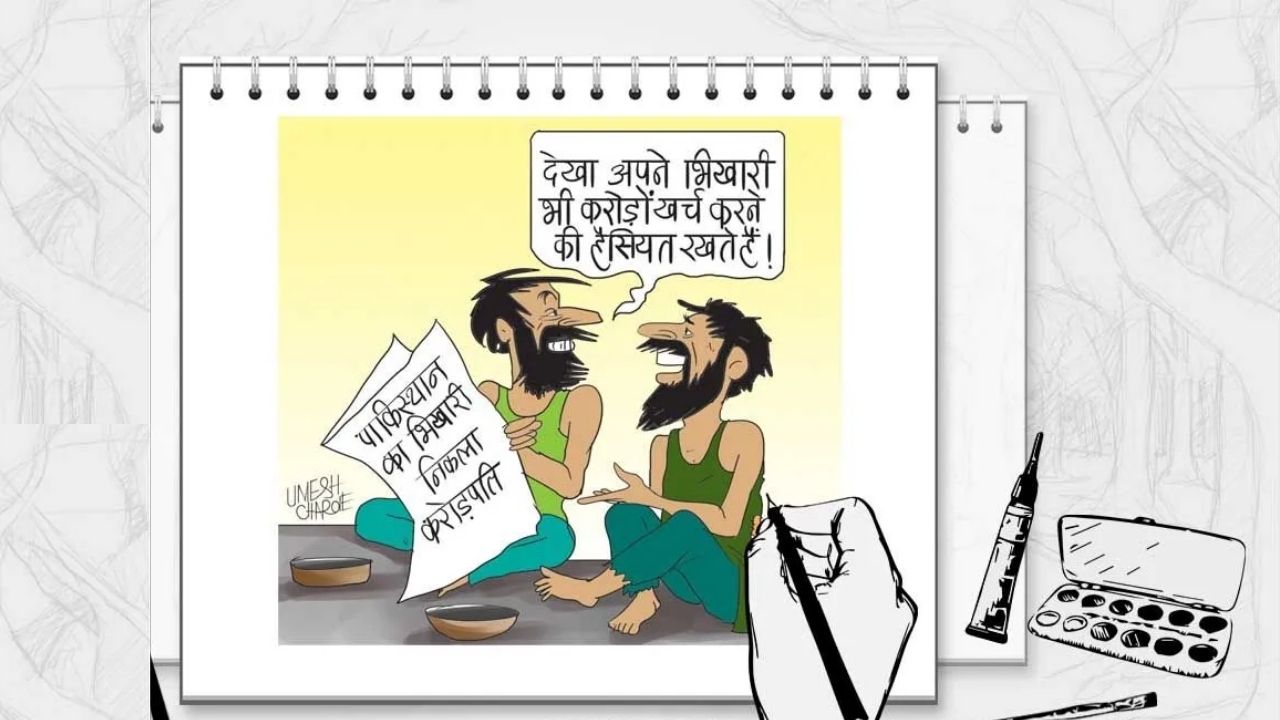 देखा अपने भिखारी
भी करोड़ों खर्च करने
की हैसियत रखते हैं !
पाकिस्थान
का भिखारी
निकला
करोड़पति
UMESH
CHAROE